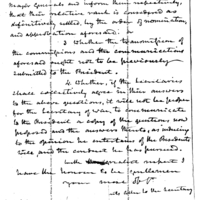 Major Generals and inform them respectively,
that their relative rank is considered as
definitively settled, by the order of nomination,
and approbation aforesaid.
3 Whether the transmission of
the commissions and the communications
aforesaid ought not to be previously
submitted to the President.
4 Whether, if the Secretaries
shall collectively agree in their answers
to the above questions, it will not be proper
for the Secretary of War, to communicate
to the President a copy of the questions now
proposed and the answers thereto, as evidence
to the opinion he entertains of the Presidents
and the conduct he has pursued.
With great respect I
have the honor to be, gentlemen
your most obt
to the Secretary